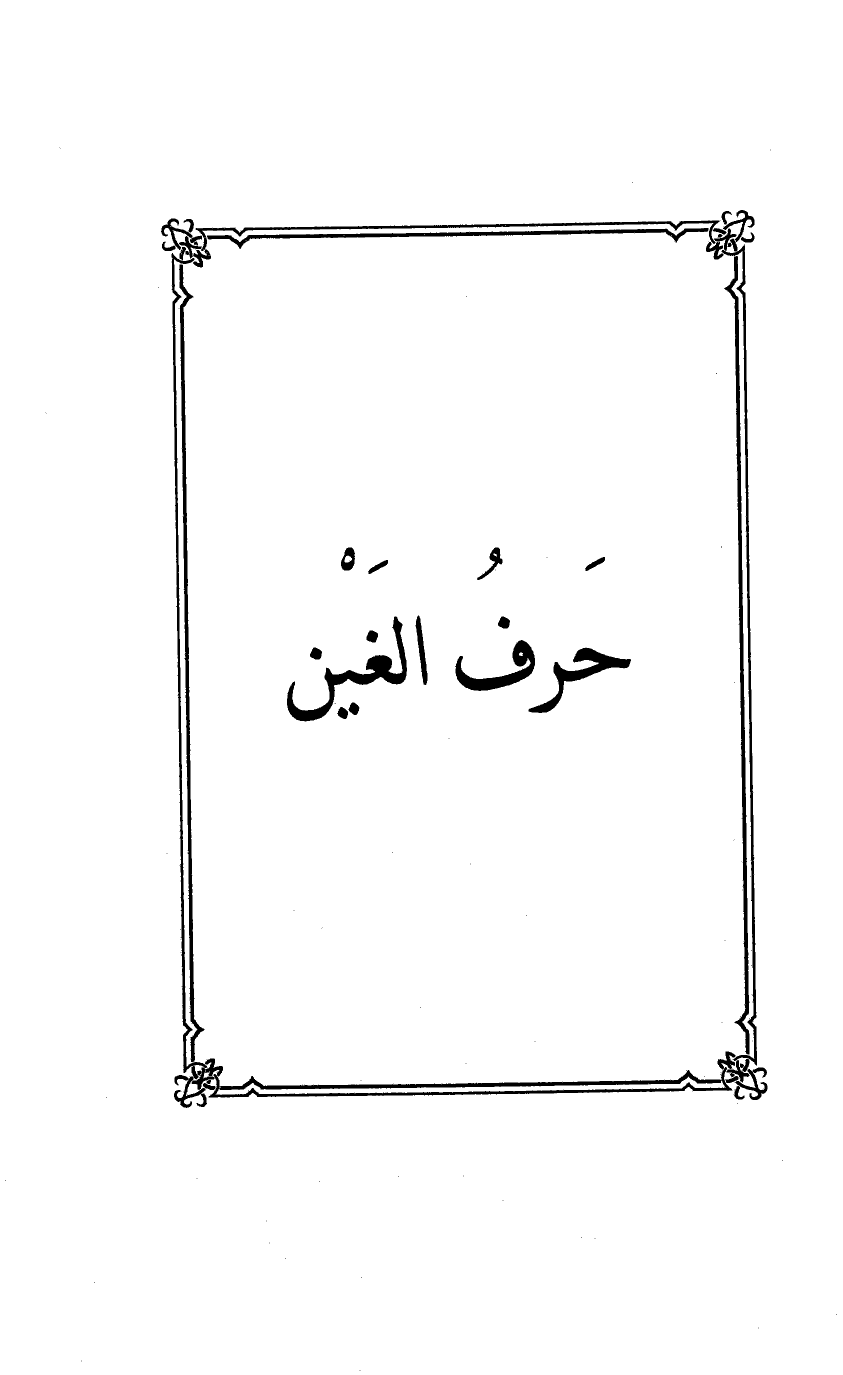 حَرفُ الغَيْن